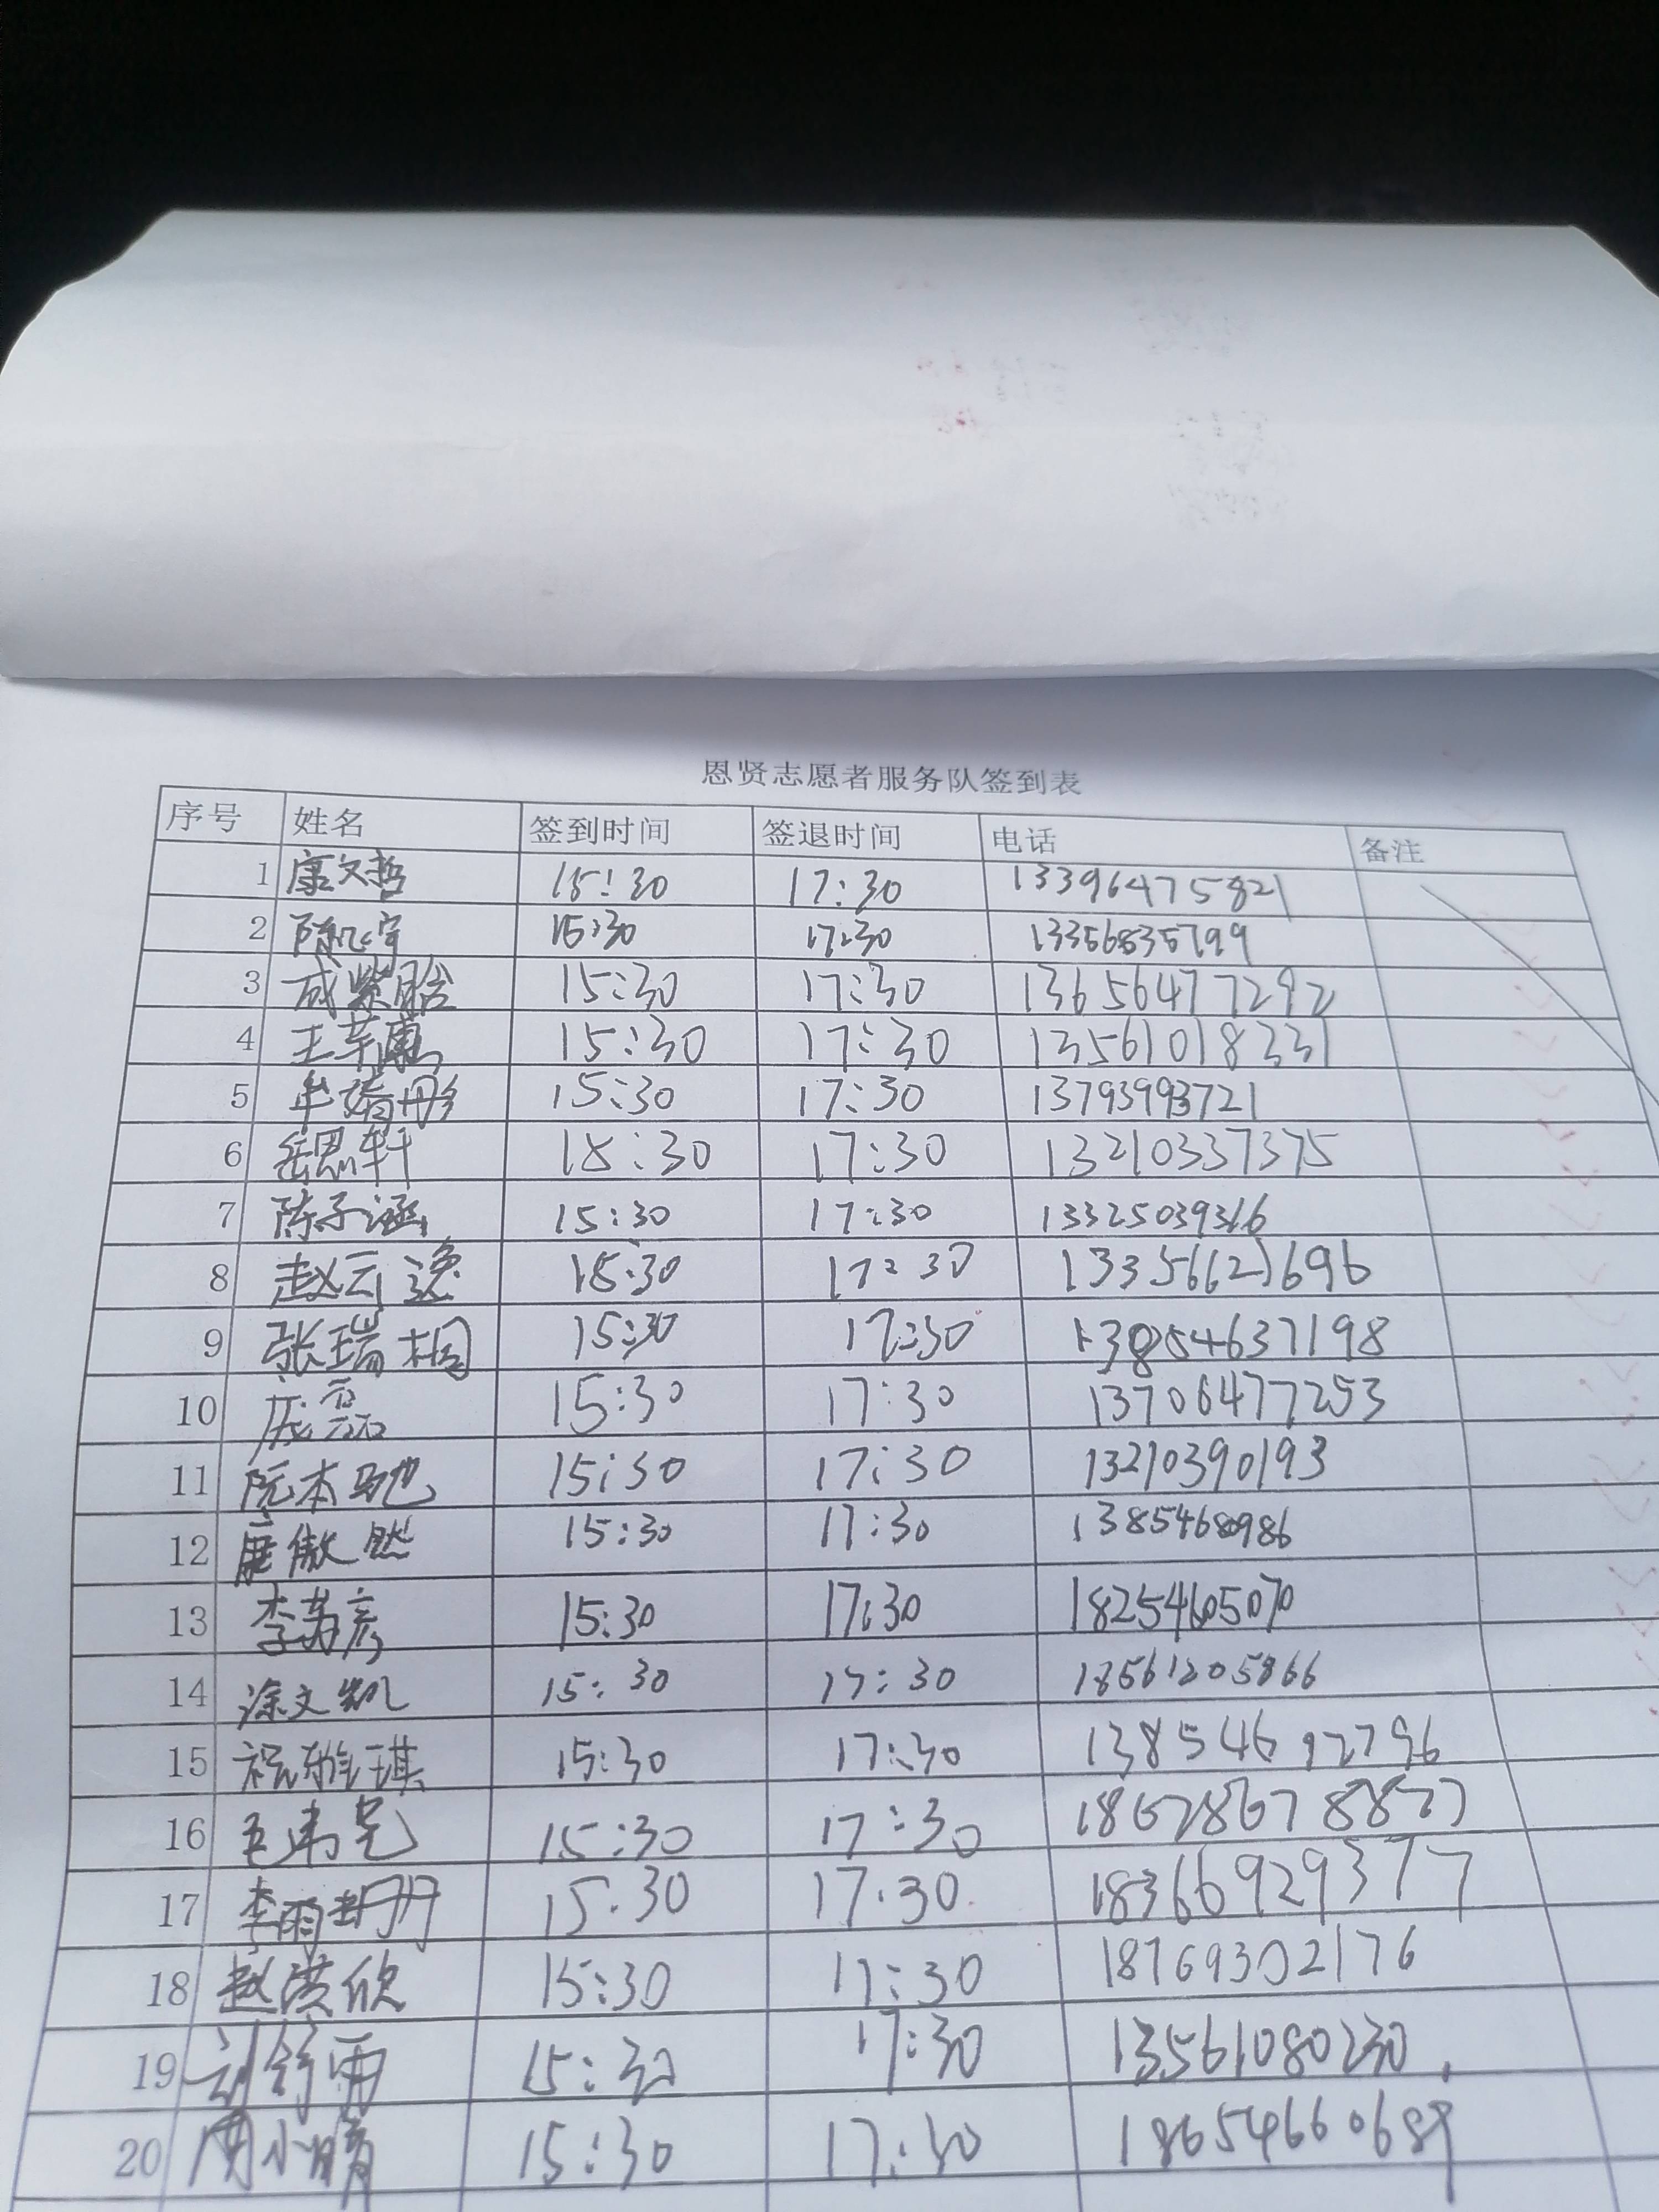 恩贤志愿者服务队签到表
序号 姓名 签到时间 签退时间 电话 备注
1 康文哲 15:30 17:30 13396475821
2 陈 宇 15:30 17:30 13356835799
3 成紫晗 15:30 17:30 13656477292
4 王 15:30 17:30 13561018331
5 牟婧彤 15:30 17:30 13793993721
6 岳恩轩 18:30 17:30 13210337375
7 陈子涵 15:30 17:30 13325039316
8 赵云逸 15:30 17:30 13356621696
9 张瑞桐 15:30 17:30 13854637198
10 庞磊 15:30 17:30 13706477253
11 阮本驰 15:30 17:30 13210390193
12 康傲然 15:30 17:30 13854680986
13 李 彦 15:30 17:30 18254605070
14 涂文凯 15:30 17:30 18561205866
15 祝雅琪 15:30 17:30 13854692796
16 15:30 17:30 18678678877
17 李雨 15:30 17:30 18366929377
18 赵洪欣 15:30 17:30 18769302176
19 刘舒雨 15:30 17:30 13561080230
20 周小晴 15:30 17:30 18654660689